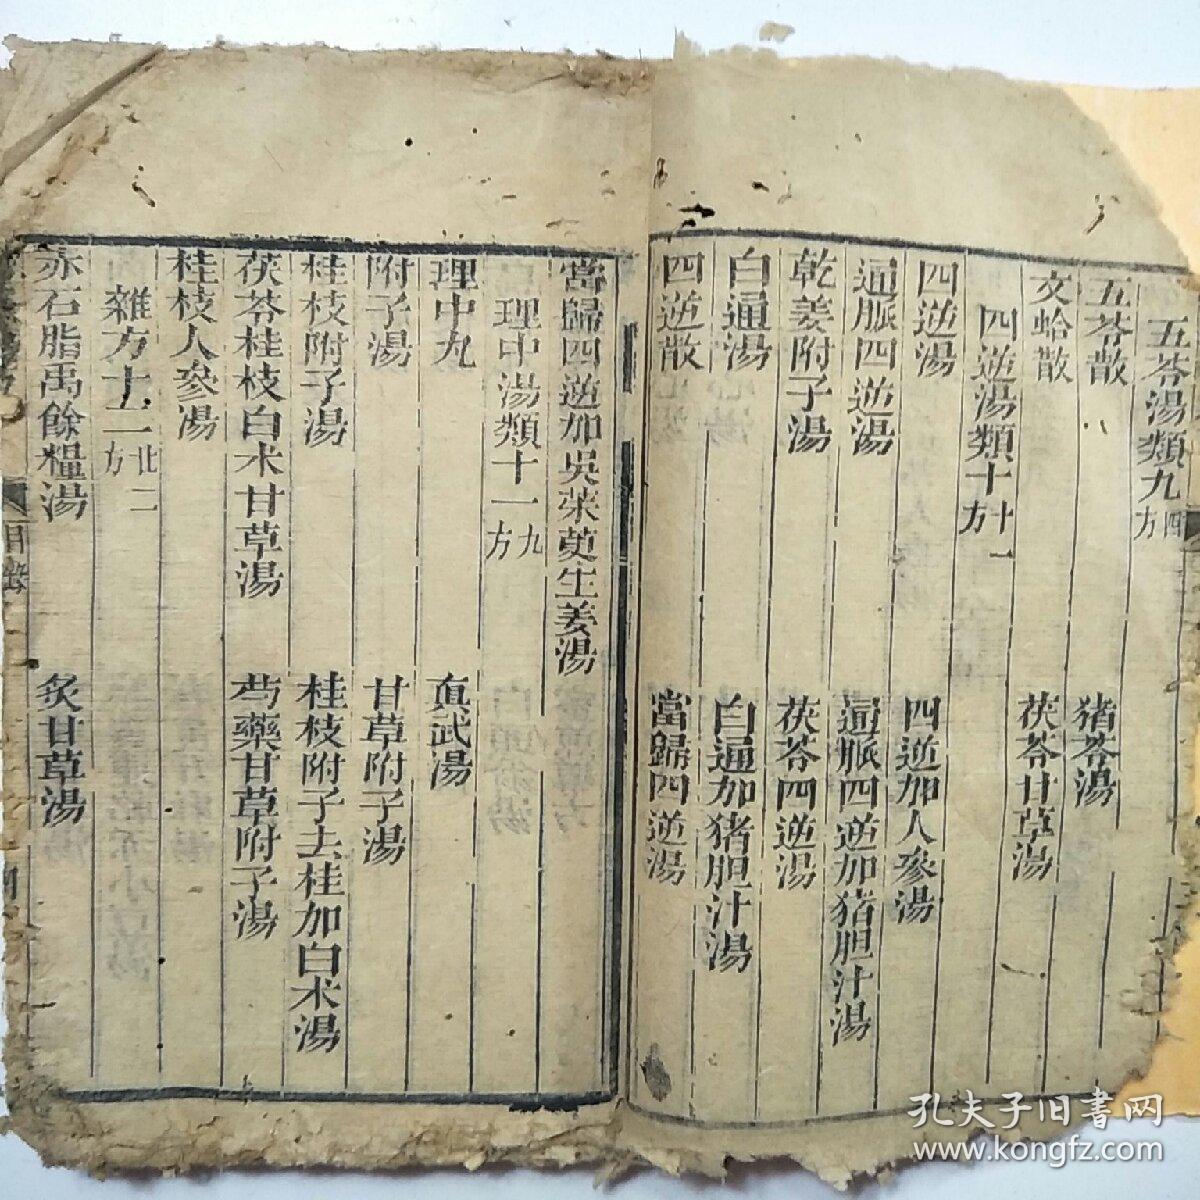 五苓湯類九 四方
五苓散 猪苓湯
文蛤散 茯苓甘草湯
四逆湯類十 十一方
四逆湯 四逆加人參湯
通脈四逆湯 通脈四逆加猪胆汁湯
乾姜附子湯 茯苓四逆湯
白通湯 白通加猪胆汁湯
四逆散 當歸四逆湯
當歸四逆加吳茱萸生姜湯
理中湯類十一 九方
理中丸 真武湯
附子湯 甘草附子湯
桂枝附子湯 桂枝附子去桂加白术湯
茯苓桂枝白术甘草湯 芍藥甘草附子湯
桂枝人參湯
雜方十二 廿二方
赤石脂禹餘糧湯 炙甘草湯
目錄
孔夫子旧书网
www.kongfz.com